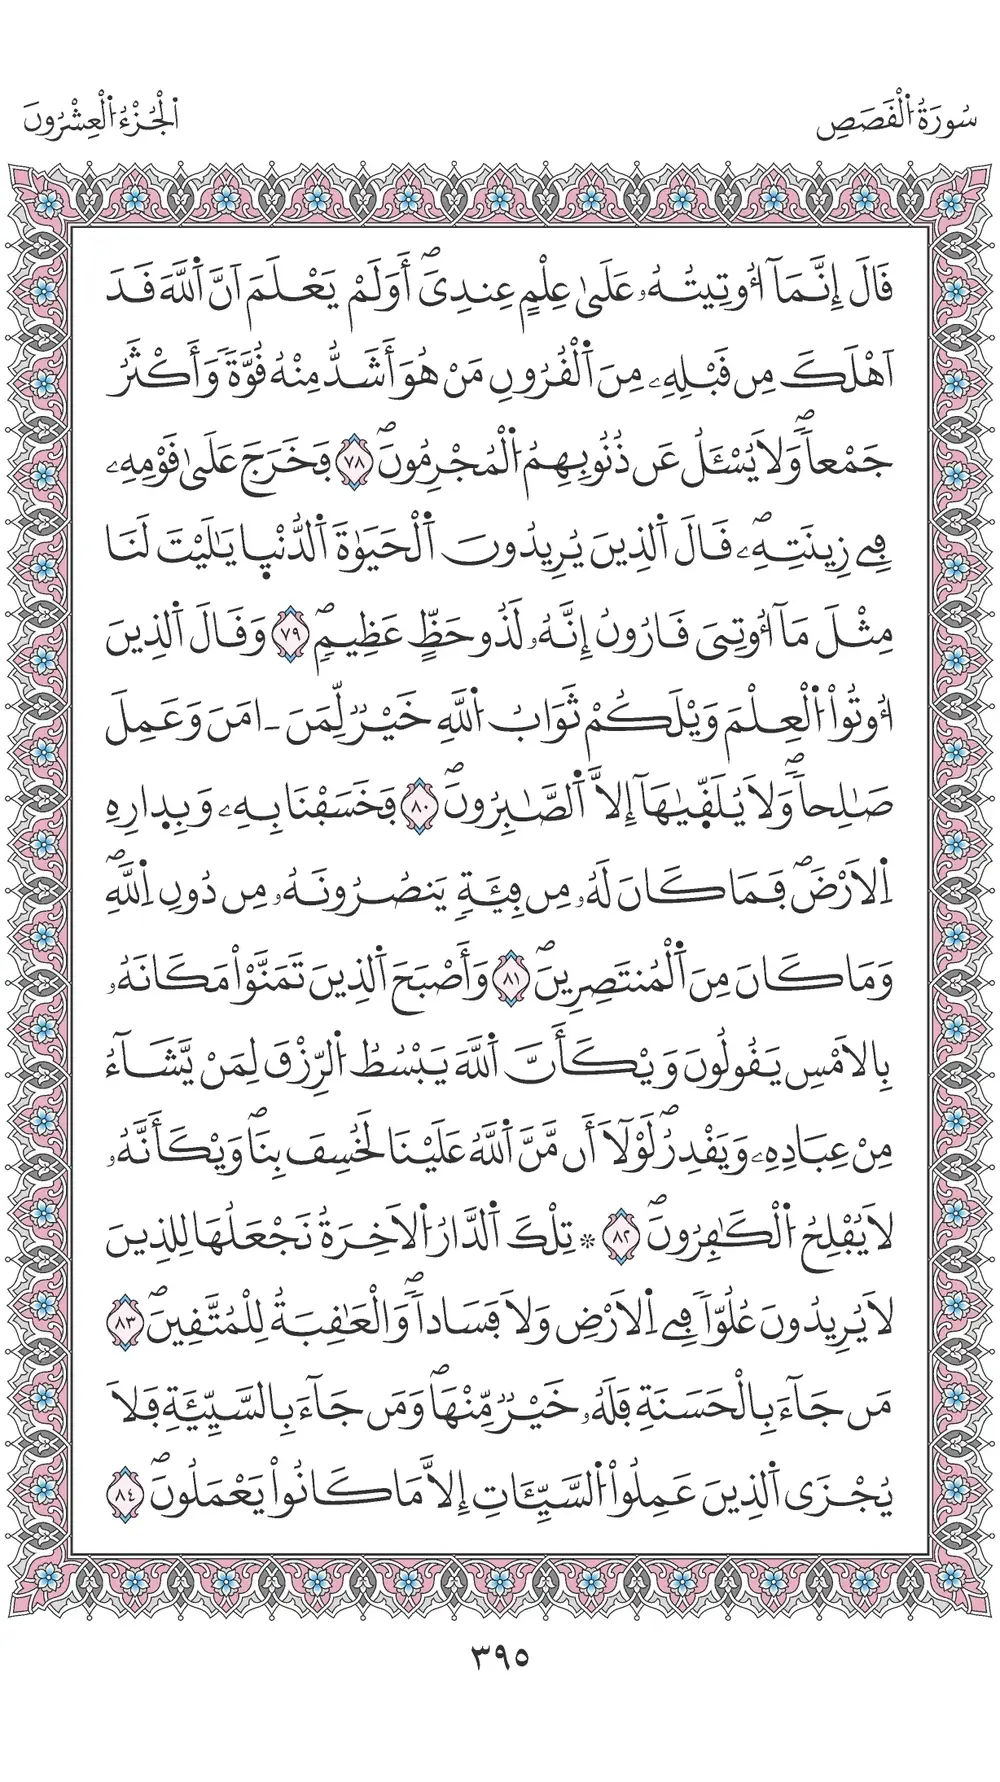 سُورَةُ اُ۬لْقَصَصِ
اَ۬لْجُزْءُ اُ۬لْعِشْرُونَ
قَالَ إِنَّمَآ أُوتِيتُهُۥ عَلَىٰ عِلْمٍ عِندِىٓۖ أَوَلَمْ يَعْلَمَ اَنَّ اَ۬للَّهَ قَدَ
اَهْلَكَ مِن قَبْلِهِۦ مِنَ اَ۬لْقُرُونِ مَنْ هُوَ أَشَدُّ مِنْهُ قُوَّةٗ وَأَكْثَرُ
جَمْعاٗۖ وَلَا يُسْـَٔلُ عَن ذُنُوبِهِمُ اُ۬لْمُجْرِمُونَۖ ٧٨ فَخَرَجَ عَلَىٰ قَوْمِهِۦ
فِے زِينَتِهِۦۖ قَالَ اَ۬لذِينَ يُرِيدُونَ اَ۬لْحَيَوٰةَ اَ۬لدُّنْيٜا يَٰلَيْتَ لَنَا
مِثْلَ مَآ أُوتِىَ قَٰرُونُ إِنَّهُۥ لَذُو حَظٍّ عَظِيمٖۖ ٧٩ وَقَالَ اَ۬لذِينَ
أُوتُواْ اُ۬لْعِلْمَ وَيْلَكُمْ ثَوَابُ اُ۬للَّهِ خَيْرٞ لِّمَنَ ـ امَنَ وَعَمِلَ
صَٰلِحاٗۖ وَلَا يُلَقّٜىٰهَآ إِلَّا اَ۬لصَّٰبِرُونَۖ ٨٠ فَخَسَفْنَا بِهِۦ وَبِدٜارِهِ
اِ۬لَارْضَۖ فَمَا كَانَ لَهُۥ مِن فِئَةٖ يَنصُرُونَهُۥ مِن دُونِ اِ۬للَّهِۖ
وَمَا كَانَ مِنَ اَ۬لْمُنتَصِرِينَۖ ٨١ وَأَصْبَحَ اَ۬لذِينَ تَمَنَّوْاْ مَكَانَهُۥ
بِالَامْسِ يَقُولُونَ وَيْكَأَنَّ اَ۬للَّهَ يَبْسُطُ اُ۬لرِّزْقَ لِمَنْ يَّشَآءُ
مِنْ عِبَادِهِۦ وَيَقْدِرُۖ لَوْلَآ أَن مَّنَّ اَ۬للَّهُ عَلَيْنَا لَخُسِفَ بِنَاۖ وَيْكَأَنَّهُۥ
لَا يُفْلِحُ اُ۬لْكَٰفِرُونَۖ ٨٢ ۞ تِلْكَ اَ۬لدَّارُ اُ۬لَاخِرَةُ نَجْعَلُهَا لِلذِينَ
لَا يُرِيدُونَ عُلُوّاٗ فِے اِ۬لَارْضِ وَلَا فَسَاداٗۖ وَالْعَٰقِبَةُ لِلْمُتَّقِينَۖ ٨٣
مَن جَآءَ بِالْحَسَنَةِ فَلَهُۥ خَيْرٞ مِّنْهَاۖ وَمَن جَآءَ بِالسَّيِّئَةِ فَلَا
يُجْزَى اَ۬لذِينَ عَمِلُواْ اُ۬لسَّيِّـَٔاتِ إِلَّا مَا كَانُواْ يَعْمَلُونَۖ ٨٤
٣٩٥